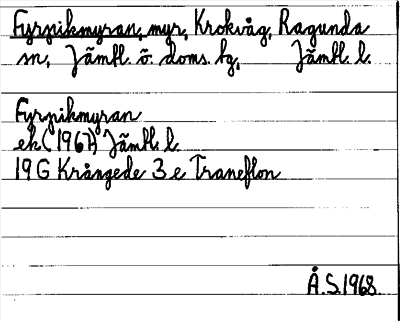 Fyrpikmyran, myr, Krokvåg, Ragunda
sn, Jämtl. ö. doms. tg, Jämtl. l.
Fyrpikmyran
ek (1967) Jämtl. l.
19 G Krångede 3 e Traneflon
Å.S. 1968.